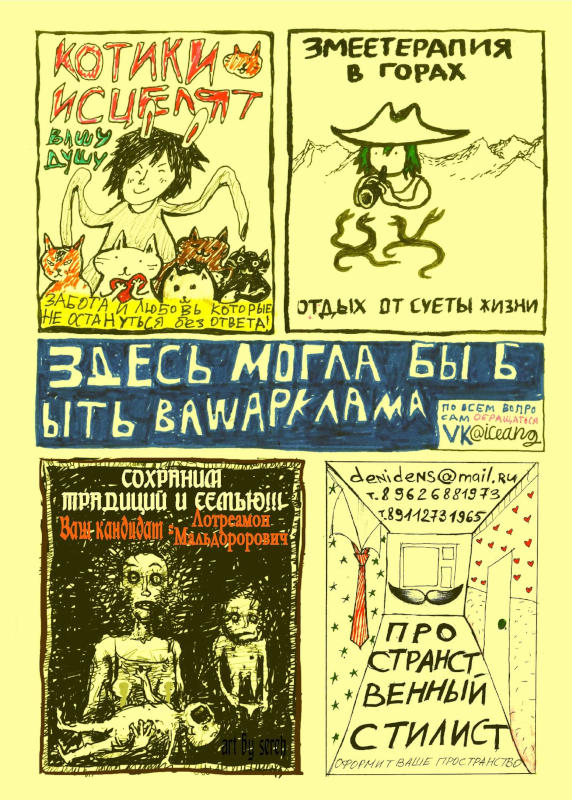 КОТИКИ
ИСЦЕЛЯТ
ВАШУ
ДУШУ
ЗАБОТА И ЛЮБОВЬ КОТОРЫЕ
НЕ ОСТАНУТЬСЯ без ОТВЕТА!
ЗМЕЕТЕРАПИЯ
В ГОРАХ
ОТДЫХ ОТ СУЕТЫ ЖИЗНИ
ЗДЕСЬ МОГЛА БЫ Б
ЫТЬ ВАШАРКЛАМА
ПО ВСЕМ ВОПРО
САМ ОБРАЩАТЬСЯ
VK@iceang
СОХРАНИМ
ТРАДИЦИЙ И СЕМЬЮ!!!
Ваш кандидат: Лотреамон
Мальдорорович
art by sereh
denidens@mail.ru
т. 8 962 6881973
т.89112731965
ПРО
СТРАНСТ
ВЕННЫЙ
СТИЛИСТ
ОФОРМИТ ВАШЕ ПРОСТРАНСТВО